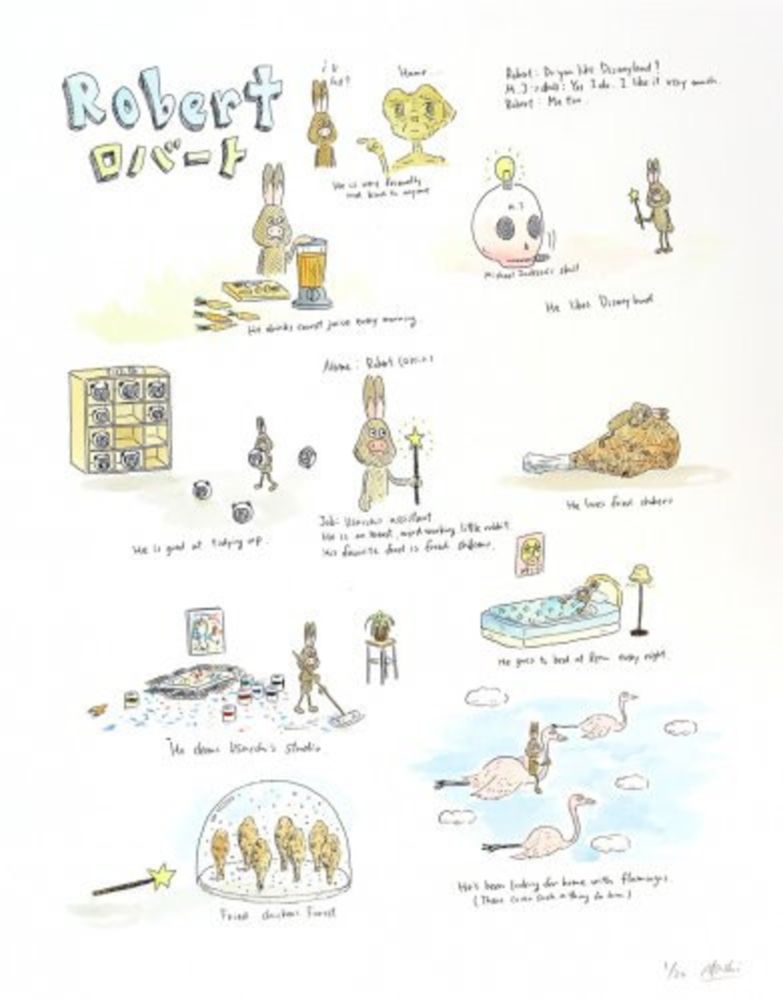 Robert
ロバート
Hmmm...
He is very friendly
and kind to anyone
Robert: Do you like Disneyland?
M.J: Yes I do. I like it very much.
Robert: Me too.
M.J
Michael Jackson's skull
He likes Disneyland
He drinks carrot juice every morning.
Name: Robert
Job: Usaichi's assistant
He is an honest, hard working little rabbit
His favorite food is fried chicken.
He is good at tidying up.
He loves fried chicken
He goes to bed at 8pm every night.
He cleans Usaichi's studio
He's been looking for home with flamingos.
(There is such a thing for him.)
Fried chicken Forest
1/20